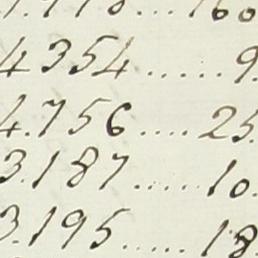 4354......9
4.756....25
3.187.....10.
3.195.....18